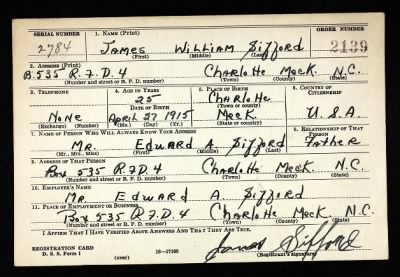 SERIAL NUMBER 1. NAME (Print) ORDER NUMBER
2784 James William Sifford 2139
(First) (Middle) (Last)
2. ADDRESS (Print)
B.535 R.F.D.4 Charlotte Meck. N.C.
(Number and street or R. F. D. number) (Town) (County) (State)
3. TELEPHONE 4. AGE IN YEARS 5. PLACE OF BIRTH 6. COUNTRY OF CITIZENSHIP
25 Charlotte
DATE OF BIRTH (Town or county)
None April 27 1915 Meck. U.S.A.
(Exchange) (Number) (Mo.) (Day) (Yr.) (State or country)
7. NAME OF PERSON WHO WILL ALWAYS KNOW YOUR ADDRESS 8. RELATIONSHIP OF THAT PERSON
Mr. Edward A. Sifford Father
(Mr., Mrs., Miss) (First) (Middle) (Last)
9. ADDRESS OF THAT PERSON
Box 535 R.F.D.4 Charlotte Meck. N.C.
(Number and street or R. F. D. number) (Town) (County) (State)
10. EMPLOYER'S NAME
Mr. Edward A. Sifford
11. PLACE OF EMPLOYMENT OR BUSINESS
Box 535 R.F.D.4 Charlotte Meck. N.C.
(Number and street or R. F. D. number) (Town) (County) (State)
I AFFIRM THAT I HAVE VERIFIED ABOVE ANSWERS AND THAT THEY ARE TRUE.
James Sifford
REGISTRATION CARD
D. S. S. Form 1 (over) 16—17105 (Registrant's signature)